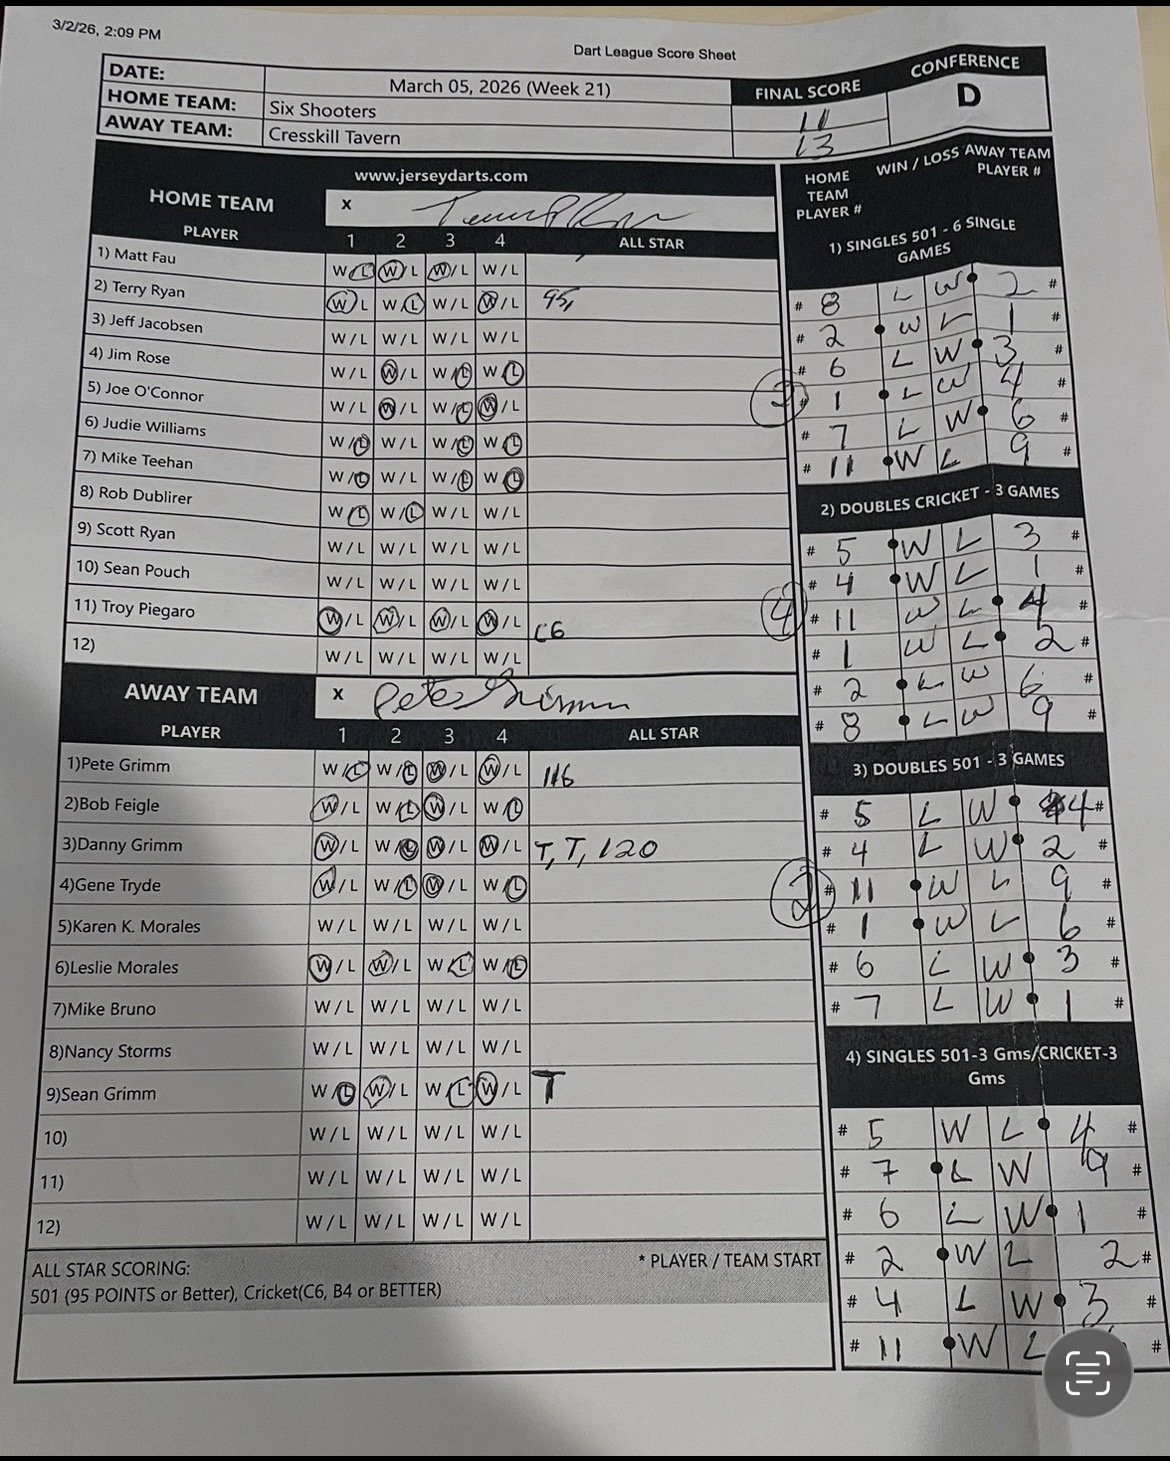 3/2/26, 2:09 PM
Dart League Score Sheet
DATE: March 05, 2026 (Week 21) FINAL SCORE CONFERENCE
HOME TEAM: Six Shooters 11 D
AWAY TEAM: Cresskill Tavern 13
www.jerseydarts.com
HOME TEAM x
PLAYER 1 2 3 4 ALL STAR
1) Matt Fau W / L W / L W / L W / L
2) Terry Ryan W / L W / L W / L W / L 95,
3) Jeff Jacobsen W / L W / L W / L W / L
4) Jim Rose W / L W / L W / L W / L
5) Joe O'Connor W / L W / L W / L W / L
6) Judie Williams W / L W / L W / L W / L
7) Mike Teehan W / L W / L W / L W / L
8) Rob Dublirer W / L W / L W / L W / L
9) Scott Ryan W / L W / L W / L W / L
10) Sean Pouch W / L W / L W / L W / L
11) Troy Piegaro W / L W / L W / L W / L C6
12) W / L W / L W / L W / L
AWAY TEAM x Pete Grimm
PLAYER 1 2 3 4 ALL STAR
1)Pete Grimm W / L W / L W / L W / L 116
2)Bob Feigle W / L W / L W / L W / L
3)Danny Grimm W / L W / L W / L W / L T, T, 120
4)Gene Tryde W / L W / L W / L W / L
5)Karen K. Morales W / L W / L W / L W / L
6)Leslie Morales W / L W / L W / L W / L
7)Mike Bruno W / L W / L W / L W / L
8)Nancy Storms W / L W / L W / L W / L
9)Sean Grimm W / L W / L W / L W / L T
10) W / L W / L W / L W / L
11) W / L W / L W / L W / L
12) W / L W / L W / L W / L
* PLAYER / TEAM START
ALL STAR SCORING:
501 (95 POINTS or Better), Cricket(C6, B4 or BETTER)
HOME TEAM PLAYER # WIN / LOSS AWAY TEAM PLAYER #
1) SINGLES 501 - 6 SINGLE GAMES
# 8 L W 2 #
# 2 W L 1 #
# 6 L W 3 #
# 1 L W 4 #
# 7 L W 6 #
# 11 W L 9 #
2) DOUBLES CRICKET - 3 GAMES
# 5 W L 3 #
# 4 W L 1 #
4
# 11 W L 4 #
# 1 W L 2 #
# 2 L W 6 #
# 8 L W 9 #
3) DOUBLES 501 - 3 GAMES
# 5 L W 4 #
# 4 L W 2 #
2
# 11 W L 9 #
# 1 W L 6 #
# 6 L W 3 #
# 7 L W 1 #
4) SINGLES 501-3 Gms/CRICKET-3 Gms
# 5 W L 4 #
# 7 L W 9 #
# 6 L W 1 #
# 2 W L 2 #
# 4 L W 3 #
# 11 W L #